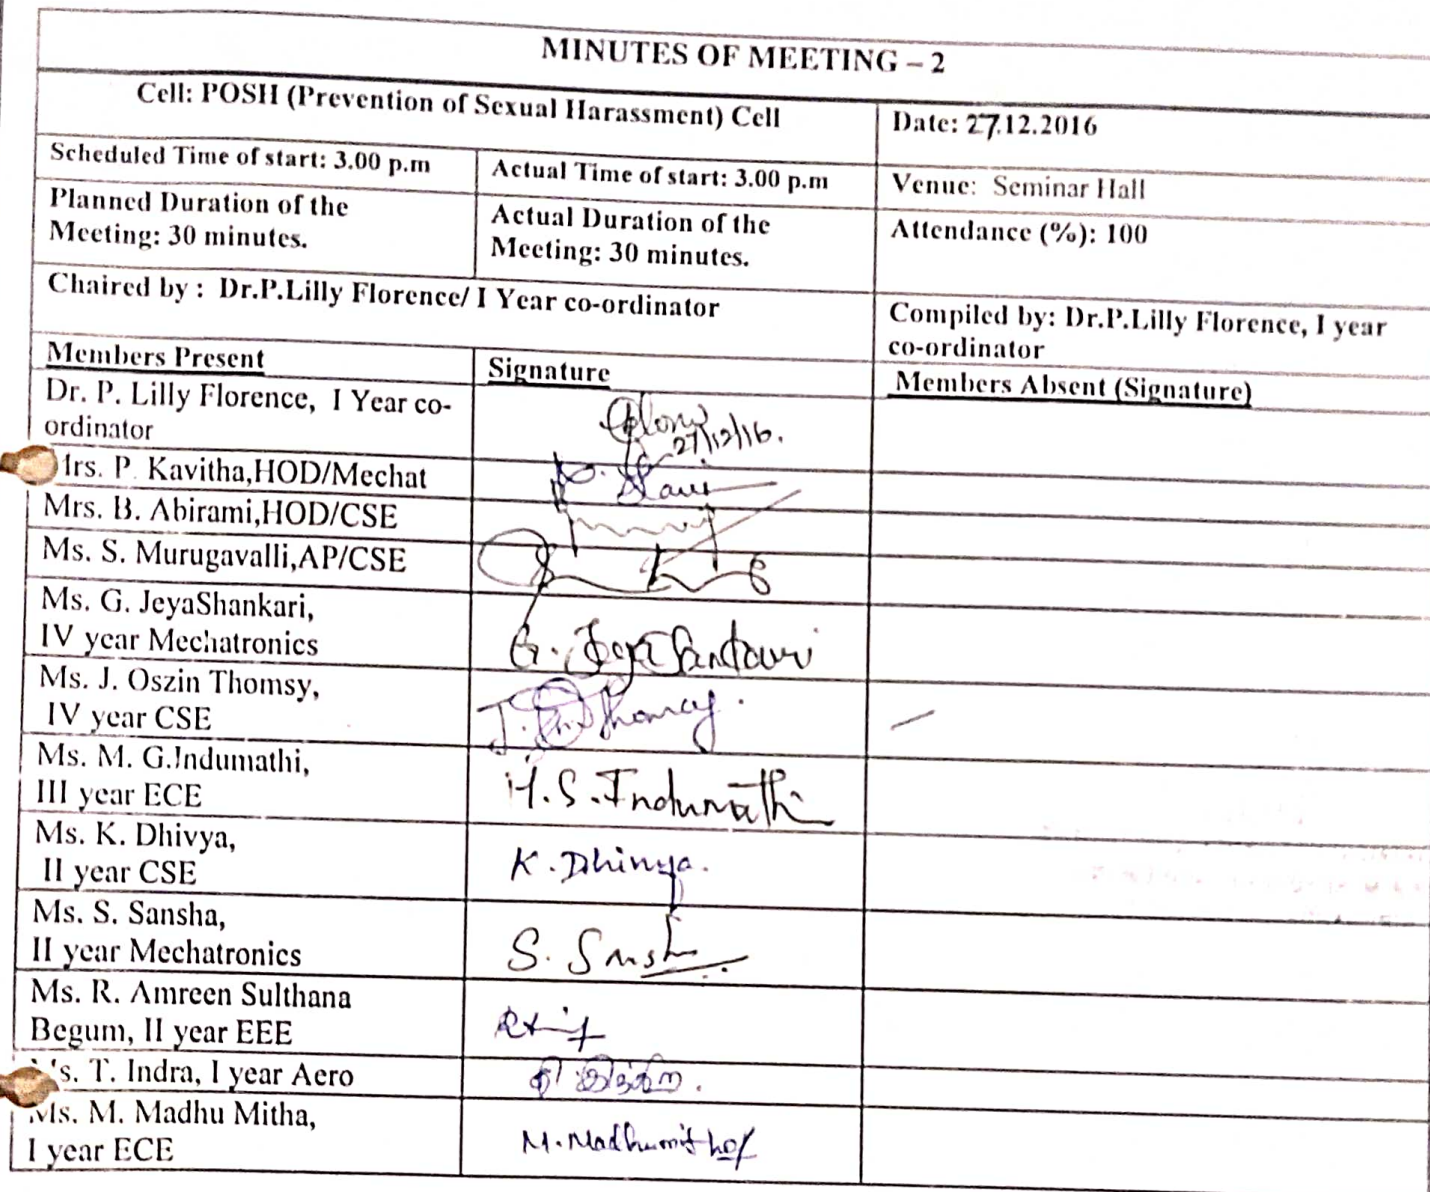 MINUTES OF MEETING – 2
Cell: POSH (Prevention of Sexual Harassment) Cell
Date: 27.12.2016
Scheduled Time of start: 3.00 p.m
Actual Time of start: 3.00 p.m
Venue: Seminar Hall
Planned Duration of the
Meeting: 30 minutes.
Actual Duration of the
Meeting: 30 minutes.
Attendance (%): 100
Chaired by : Dr.P.Lilly Florence/ I Year co-ordinator
Compiled by: Dr.P.Lilly Florence, I year
co-ordinator
Members Present
Signature
Members Absent (Signature)
Dr. P. Lilly Florence, I Year co-
ordinator
27/12/16.
Mrs. P. Kavitha,HOD/Mechat
Mrs. B. Abirami,HOD/CSE
Ms. S. Murugavalli,AP/CSE
Ms. G. JeyaShankari,
IV year Mechatronics
Ms. J. Oszin Thomsy,
IV year CSE
Ms. M. G.Indumathi,
III year ECE
M.S.Indumathi
Ms. K. Dhivya,
II year CSE
K.Dhivya.
Ms. S. Sansha,
II year Mechatronics
Ms. R. Amreen Sulthana
Begum, II year EEE
Ms. T. Indra, I year Aero
Ms. M. Madhu Mitha,
I year ECE
M.Madhumitha